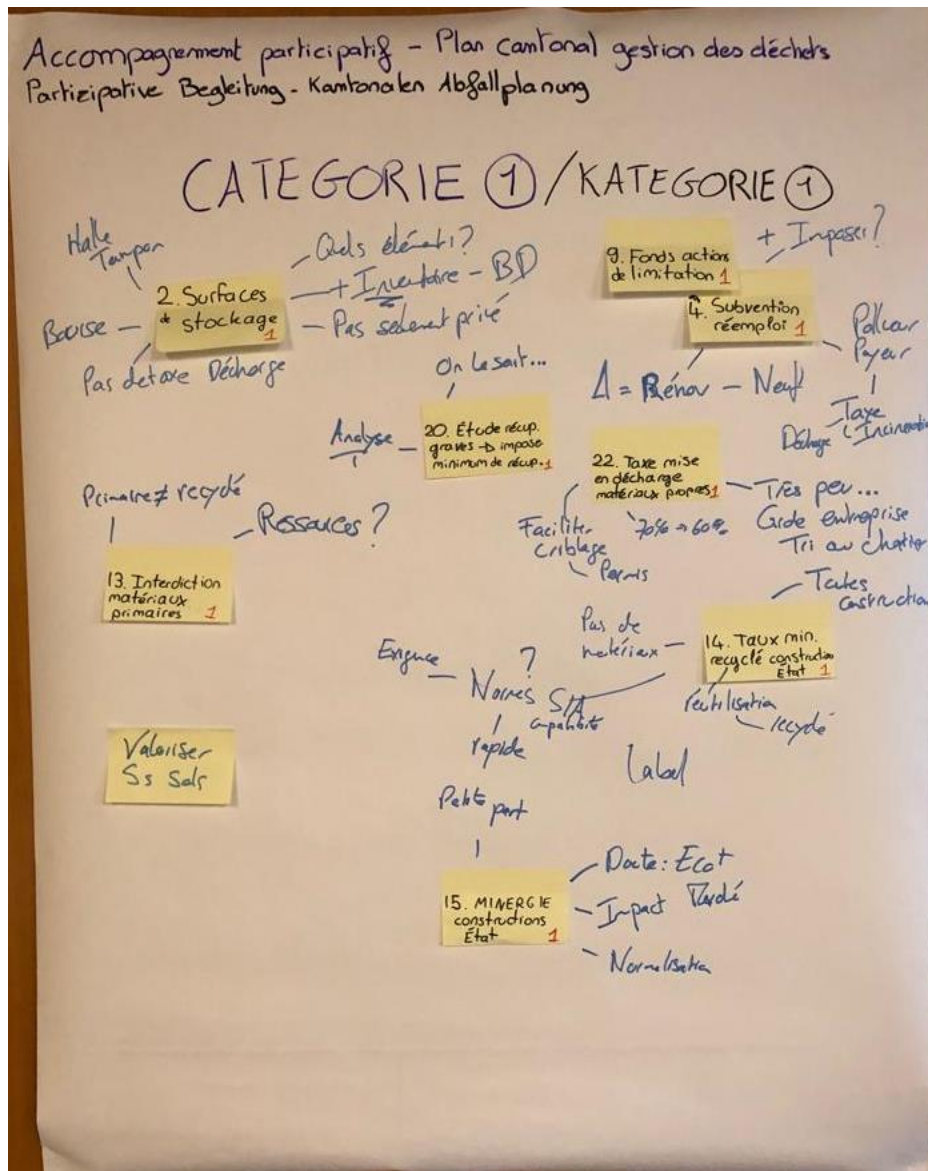 Accompagnement participatif - Plan cantonal gestion des déchets
Partizipative Begleitung - Kantonalen Abfallplanung
CATEGORIE 1 / KATEGORIE 1
Halle
Tampon
Quels éléments?
2. Surfaces
de stockage
1
+ Inventaire - BD
Bourse
Pas seulement privé
Pas de taxe Décharge
9. Fonds actions
de limitation 1
+ Imposer?
4. Subvention
réemploi 1
Δ = Rénov - Neuf
Pollueur
Payeur
Taxe
Décharge
Incineration
On le sait...
Analyse
20. Étude récup.
graves → impose
minimum de récup. 1
22. Taxe mise
en décharge
matériaux propres 1
Très peu...
Grde entreprise
Tri au chantier
70% → 60%
Faciliter
criblage
Permis
Primaire ≠ recyclé
Ressources?
13. Interdiction
matériaux
primaires 1
Toutes
construction
Pas de
matériaux
14. Taux min.
recyclé construction
Etat 1
réutilisation
recyclé
Exigence
?
Normes SIA
rapide
Label
Valoriser
Ss Sols
Petite part
15. MINERGIE
constructions
État 1
Doute: Eco+
Impact
Normalisation